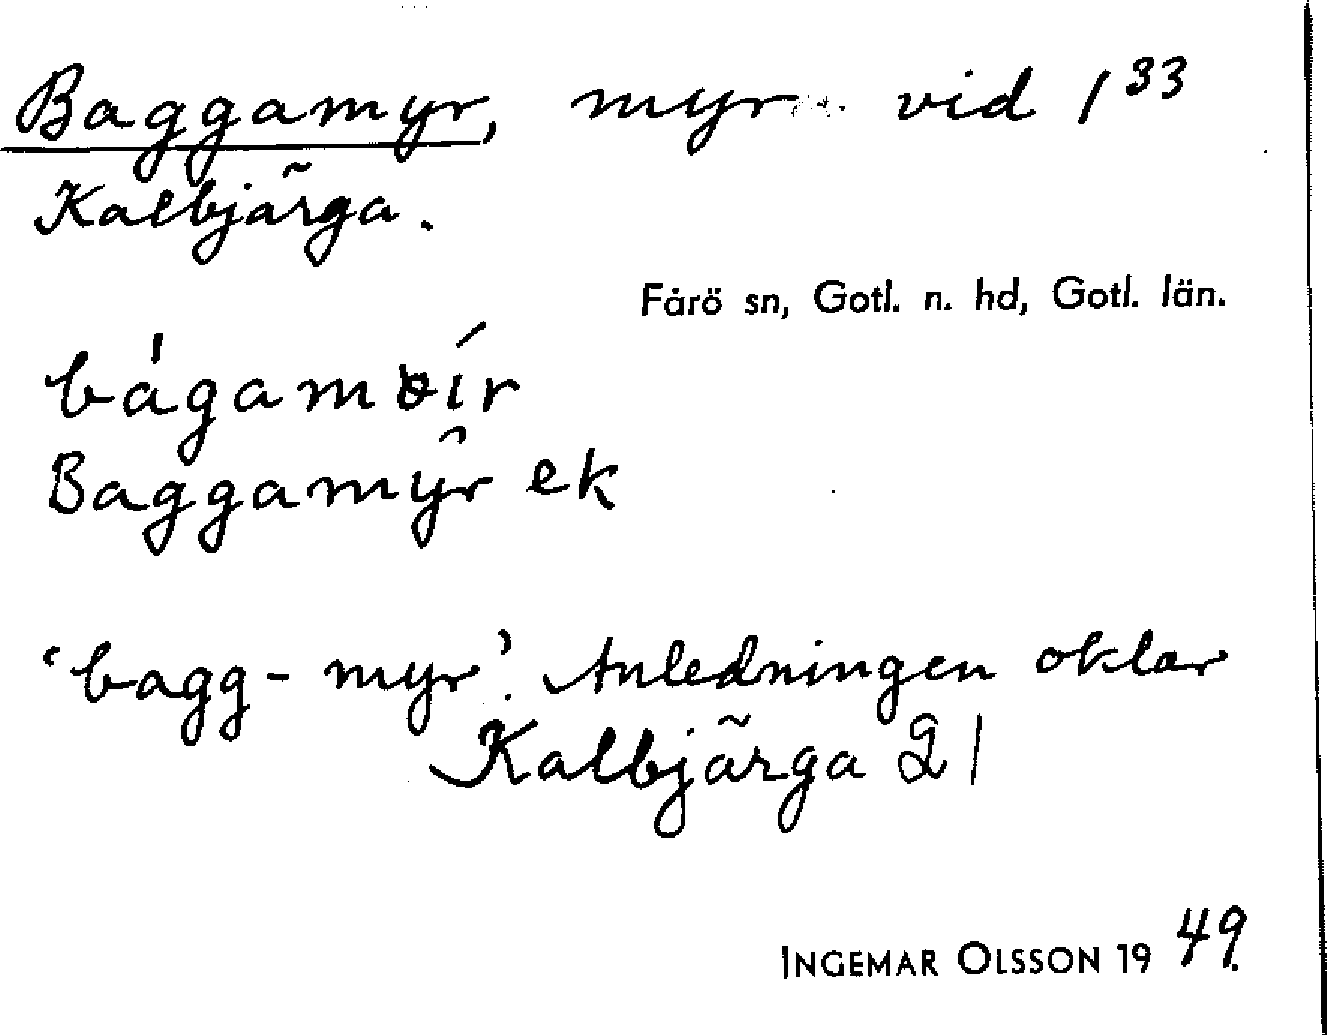 Baggamyr, myr vid 1³³
Kalbjärga.
Fårö sn, Gotl. n. hd, Gotl. län.
Baggamyr ek
'bagg-myr'. Anledningen oklar
Kalbjärga 21
INGEMAR OLSSON 19 49.